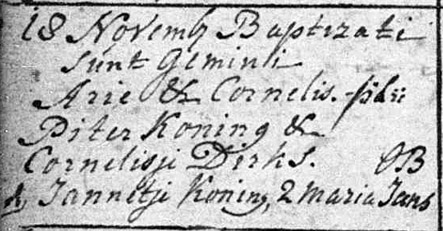 18 Novemb Baptizati
sunt Gemini
Arie & Cornelis. filii
Piter Koning &
Cornelisje Dirks. OB
Jannetje Koning, 2 Maria Jans